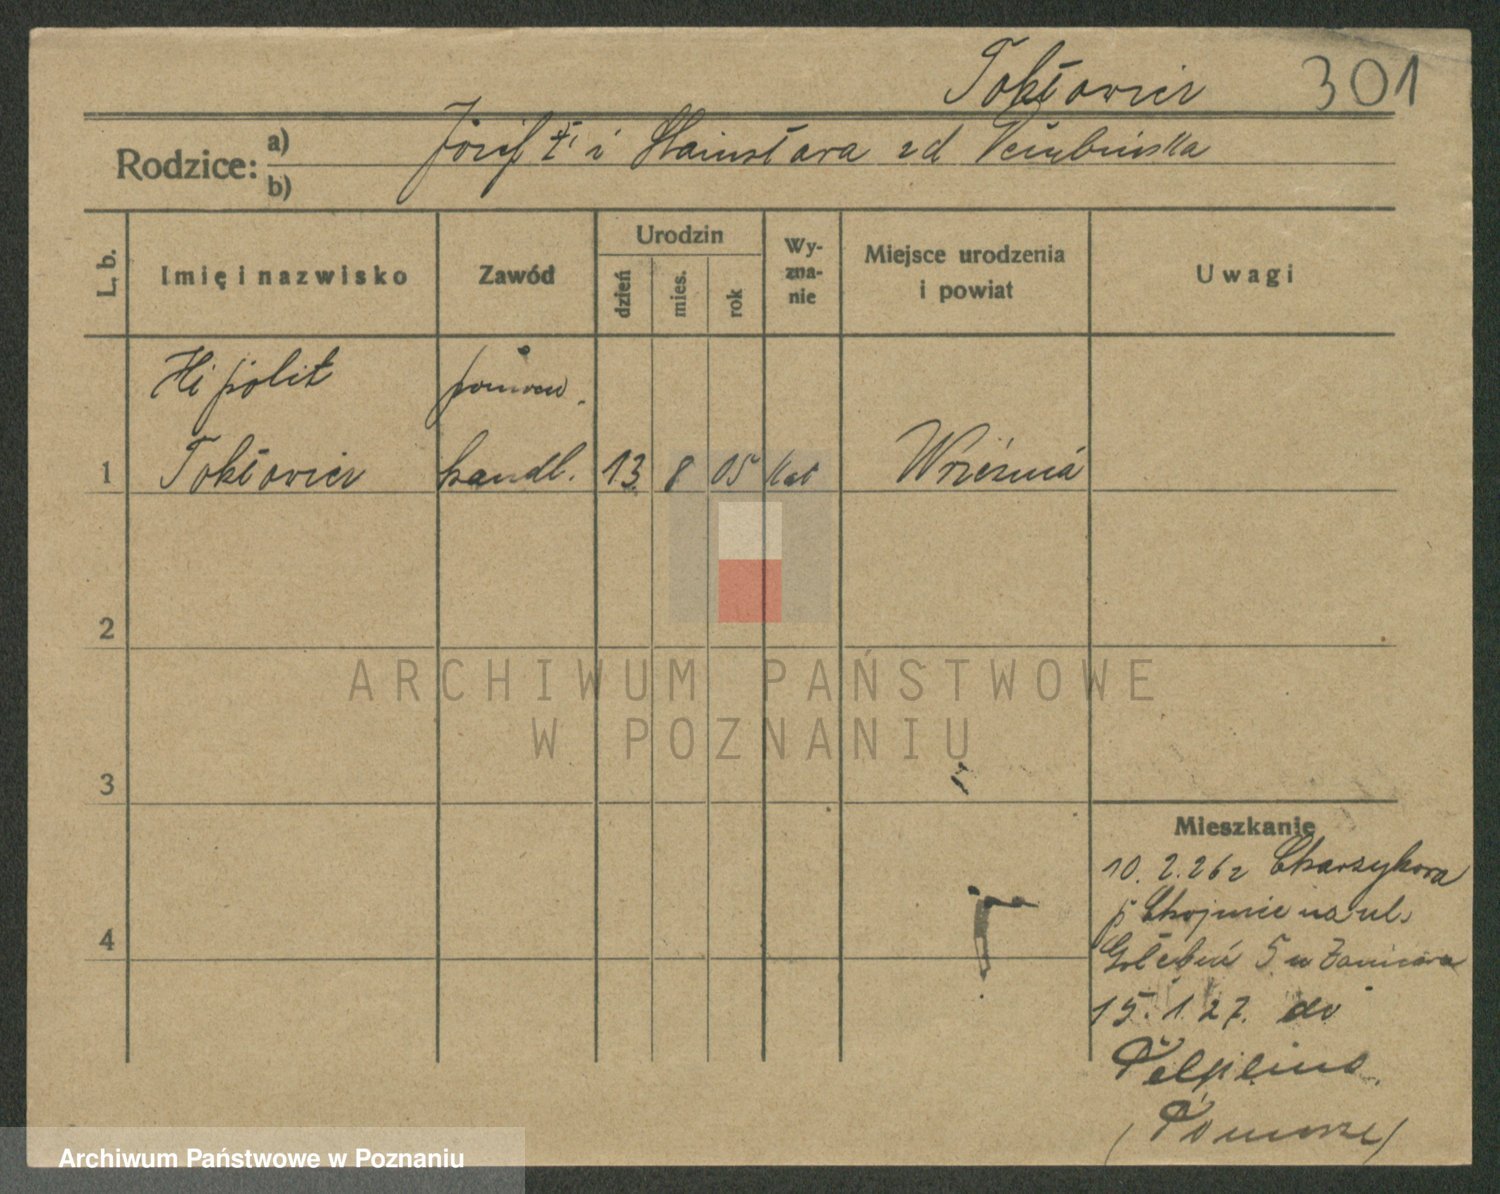 Tokłowicz 301
Rodzice: a) Józef i Stanisława zd
b)
L. b.
Imię i nazwisko
Zawód
Urodzin
dzień
mies.
rok
Wy-
zna-
nie
Miejsce urodzenia
i powiat
Uwagi
Hipolit
1 Tokłowicz handl. 13 8 05 kat Września
2
ARCHIWUM PAŃSTWOWE
W POZNANIU
3
Mieszkanie
10. 2. 26 z Charzykowa
p Chojnice na ul.
4
5 u
15. 1 27. do
Pelplina
(Pomorze)
Archiwum Państwowe w Poznaniu